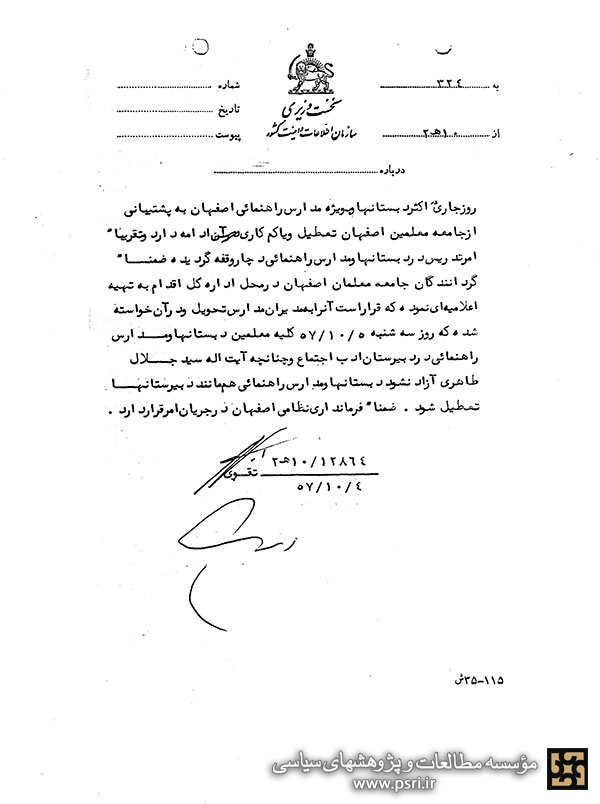 به ۳۲۴
شماره
نخست وزیری
تاریخ
از ۱۰هـ۲
سازمان اطلاعات و امنیت کشور
پیوست
درباره
روزجاری اکثرد بستانها وبویژه مد ارس راهنمائی اصفهان به پشتیبانی
ازجامعه معلمین اصفهان تعطیل ویاکم کاری درآن اد امه د ارد وتقریبا"
امرتد ریس د رد بستانها ومد ارس راهنمائی د چاروقفه گرد ید ه ضمنا"
گرد انند گان جامعه معلمان اصفهان د رمحل اد اره کل اقد ام به تهیه
اعلامیه‌ای نمود ه که قراراست آنرا به مد یران مد ارس تحویل ود رآن خواسته
شد ه که روز سه شنبه ۵۷/۱۰/۵ کلیه معلمین د بستانها ومد ارس
راهنمائی د رد بیرستان اد ب اجتماع وچنانچه آیت اله سید جلال
طاهری آزاد نشود د بستانها ومد ارس راهنمائی هم مانند د بیرستانها
تعطیل شود . ضمنا" فرماند اری نظامی اصفهان د رجریان امرقرارد ارد .
۱۰/۱۲۸۶۴هـ۲
تقوی
۵۷/۱۰/۴
۳۵-۱۱۵ش
مؤسسه مطالعات و پژوهشهای سیاسی
www.psri.ir